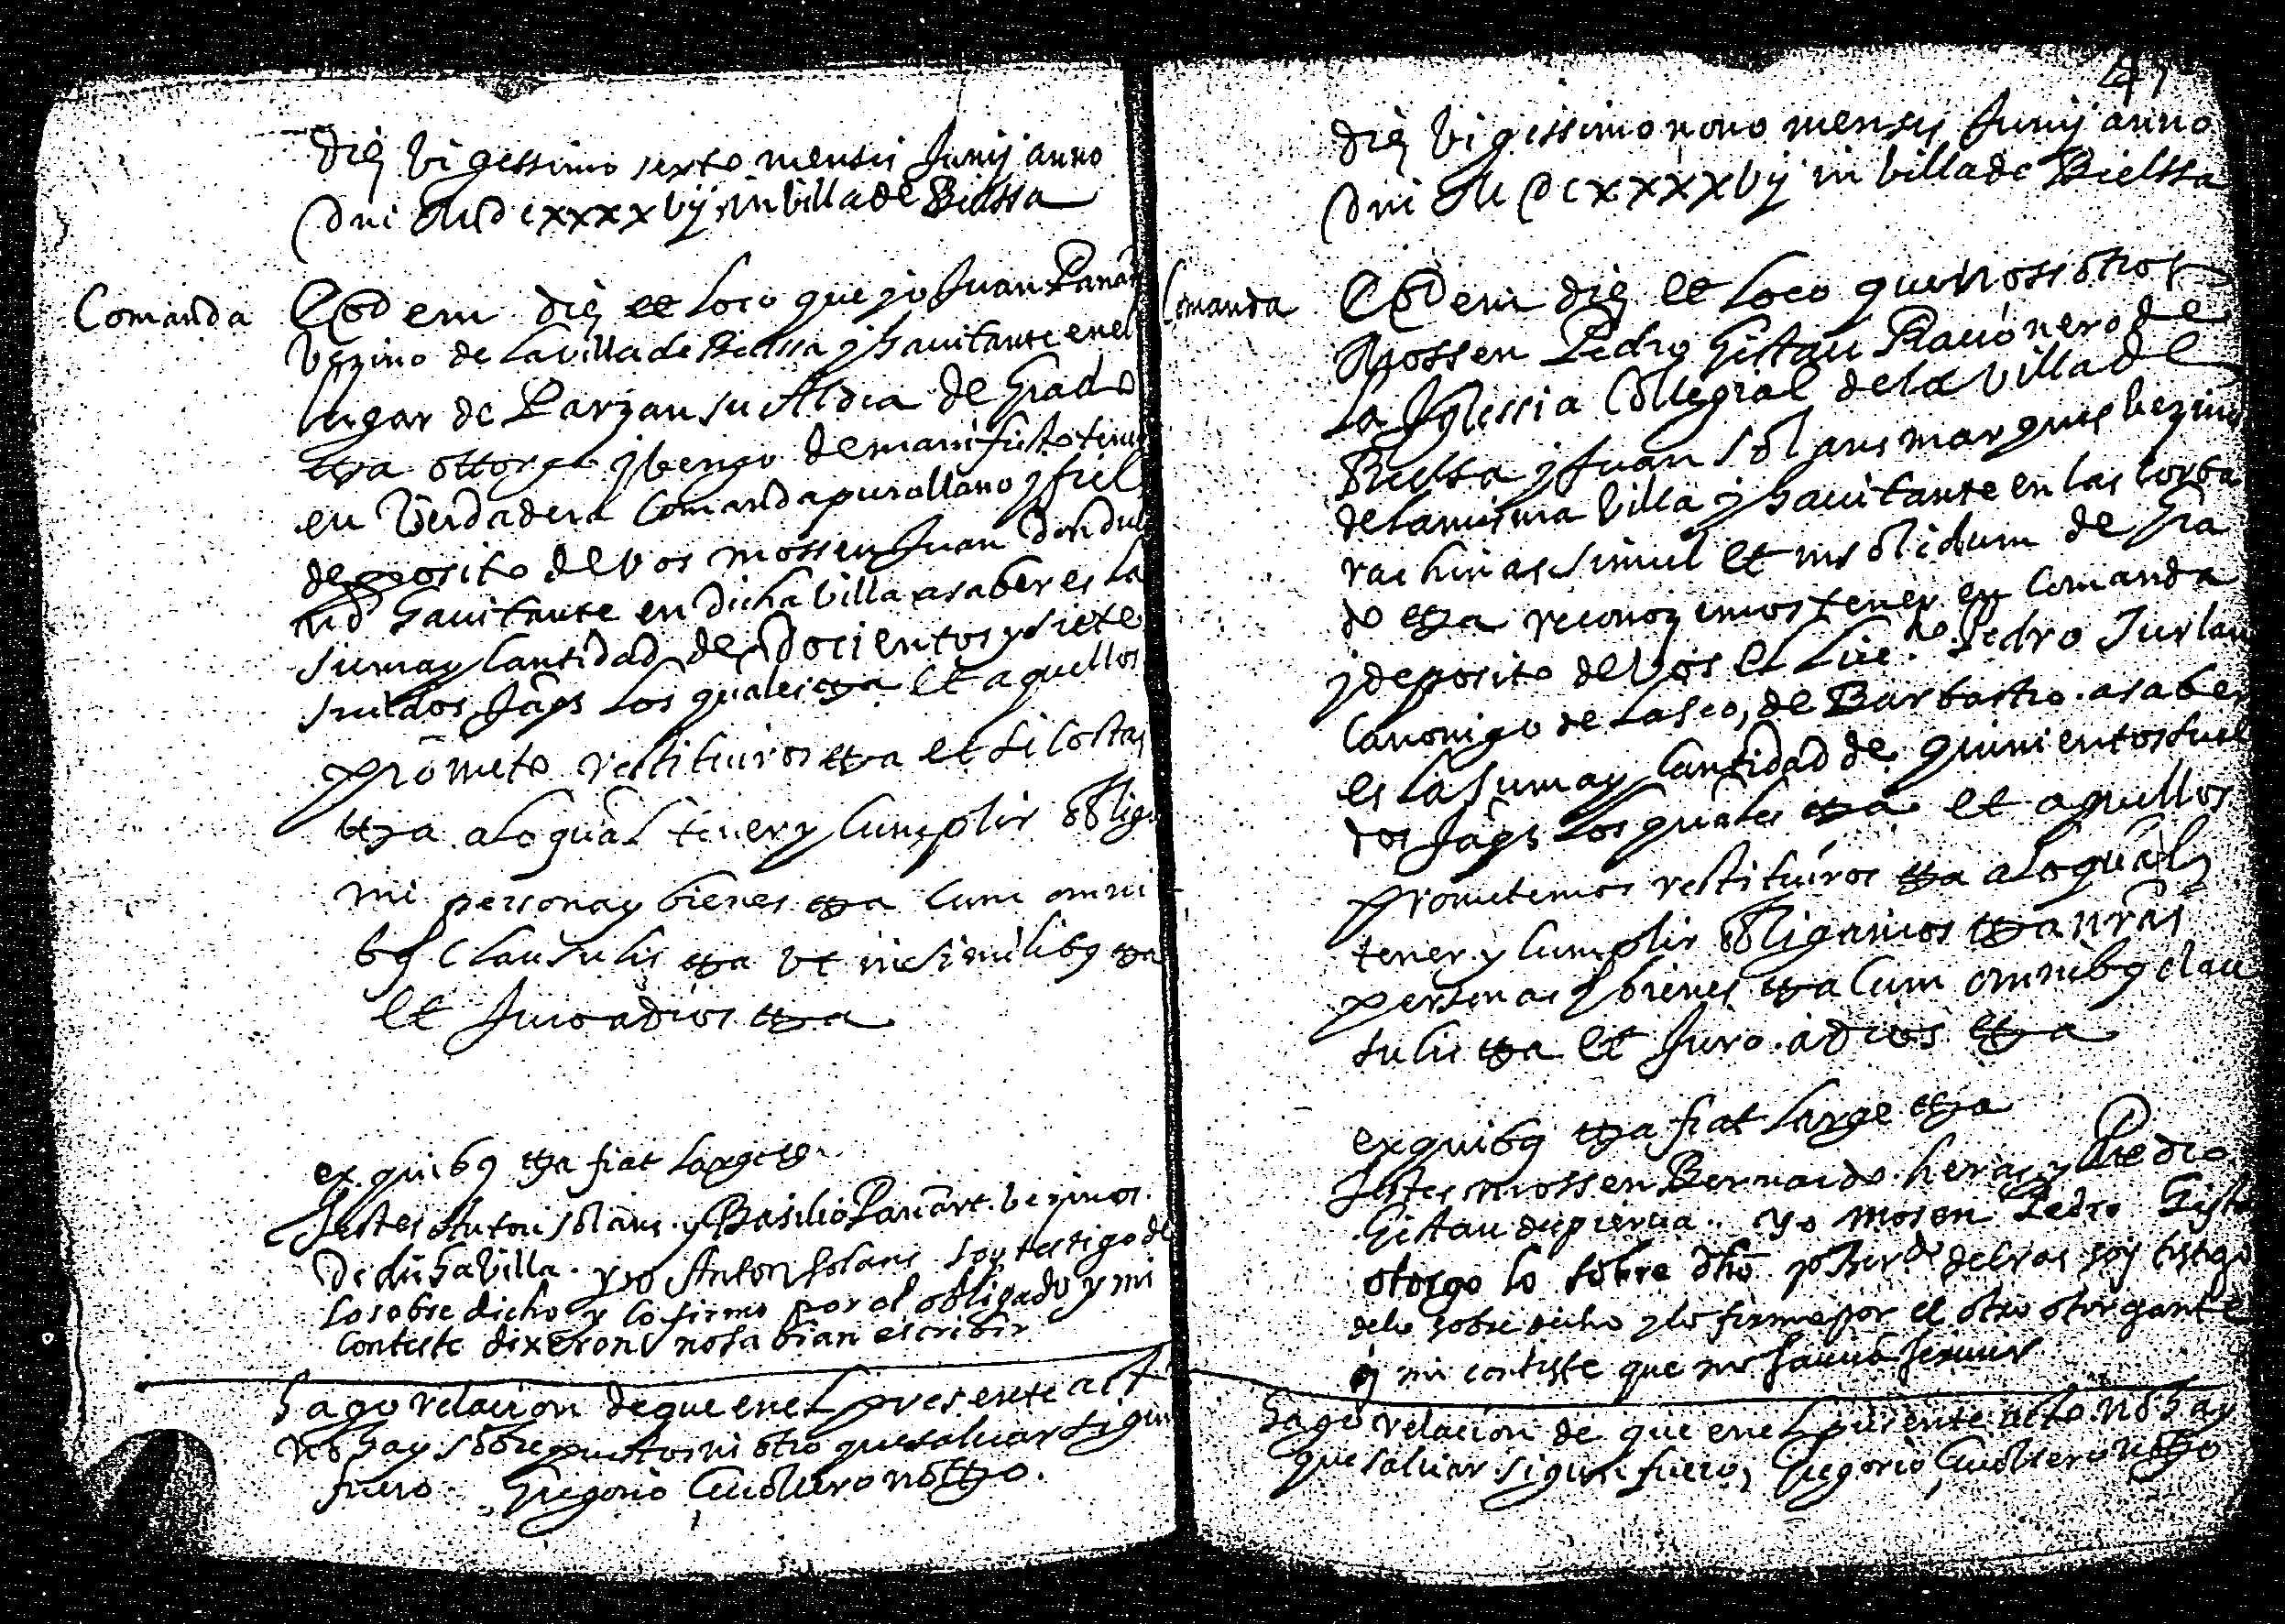 Die vigessimo sexto mensis Junij anno
Dni MDcxxxxvij in villa de Bielssa
Comanda
Eodem die et loco que yo Juan
vezino de la villa de Bielssa y hauitante en el
lugar de Parzan su Aldea de Grado
etta ottorgo y vengo de manifiesto tener
en verdadera Comanda puro llano y fiel
deposito de vos mossen Juan
hauitante en dicha villa a saber es la
suma y cantidad de docientos y siete
sueldos Jaqs los quales etta et aquellos
prometo restituiros etta et si costas
etta a lo qual tener y cumplir obligo
mi persona y bienes etta cum omni
bq clausulis etta ut in similibq etta
et Juro a dios etta
ex quibq etta fiat large etta
Testes Anton Solans y Basilio vezinos
de dicha villa. yo Anton Solans soy testigo de
lo sobre dicho y lo firmo por el obligado y mi
conteste dixeron no sabian escribir
hago relacion de que en el presente act
no hay sobrepuestos ni otro que saluar sigun
fuero. Gregorio notto.
Die vigessimo nono mensis Junij anno
Dni MDcxxxxvij in villa de Bielssa
Comanda
Eodem die et loco que nossotros
Mossen Pedro Gistau Racionero de
la Yglessia Collegial de la villa de
Bielssa y Juan Solans marques vezino
de la misma villa y hauitante en las corta
rachinas simul et insolidum de Gra
do etta reconozemos tener en comanda
y deposito de vos el Licdo. Pedro
Canonigo de la seo, de Barbastro. a saber
es la suma y cantidad de quinientos suel
dos Jaqs los quales etta et aquellos
prometemos restituiros etta a lo qual
tener y cumplir obligamos etta nras
personas y bienes etta cum omnibq clau
sulis etta et Juro a dios etta
ex quibq etta fiat large etta
Testes mossen Bernardo heras y Pedro
Gistau de pierna. yo mosen Pedro Gista
otorgo lo sobre dho yo Berdo de heras soy testigo
de lo sobre dicho y lo firmo por el otro otorgante
y mi conteste que no
hago relacion de que en el presente acto no hay
que saluar sigun fuero, Gregorio notto